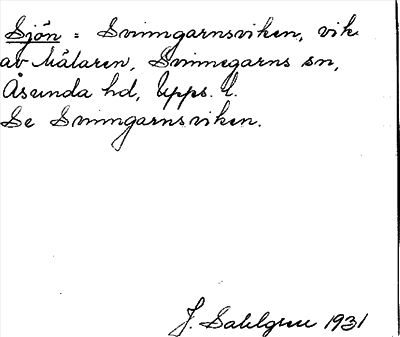 Sjön = Svinngarnsviken, vik
av Mälaren, Svinnegarns sn,
Åsunda hd, Upps. l.
Se Svinngarnsviken.
J. Sahlgren 1931